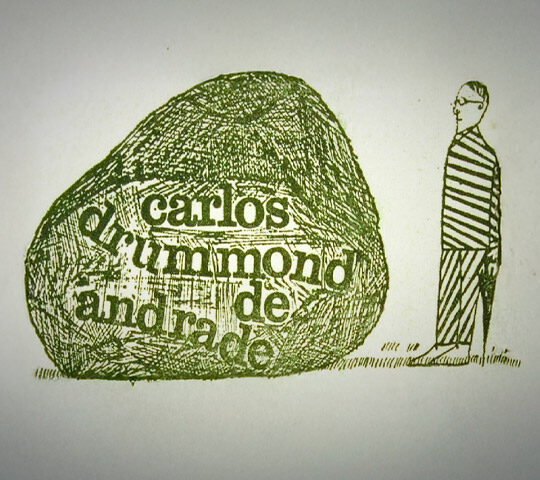 carlos
drummond
de
andrade